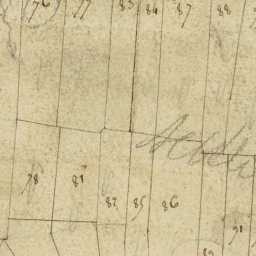 76 77 83 84 87 88
78 81 82 85 86
91